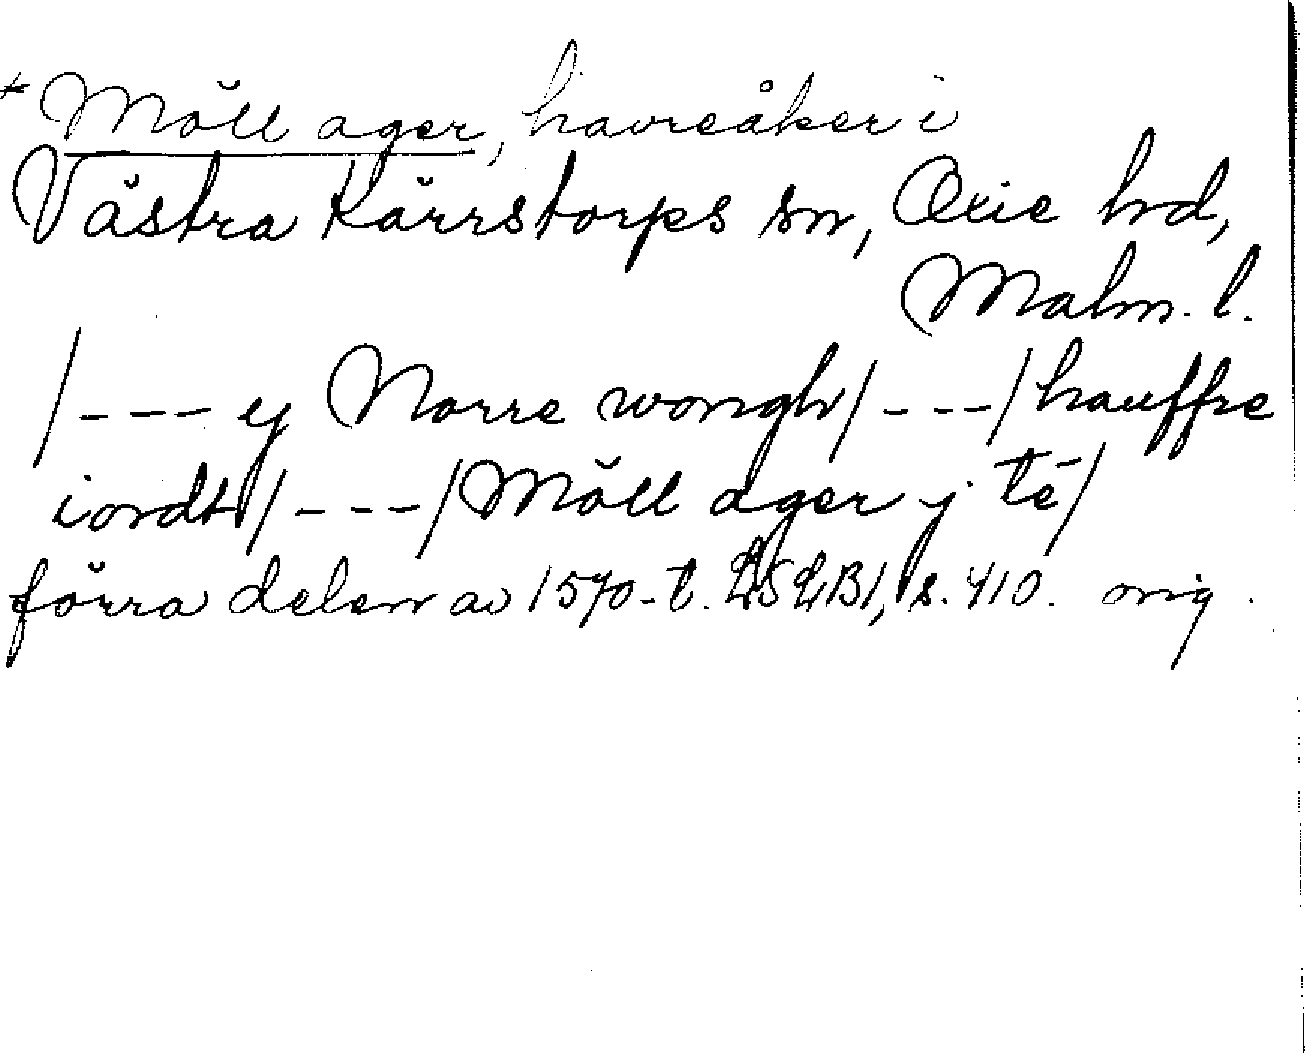 * Möll ager, havreåker i
Västra Kärrstorps sn, Oxie hd,
Malm. l.
/--- y Norre wongh/---/hauffre
iordt/---/Möll ager j tē/
förra delen av 1570-t. LSLB1, s. 410. orig.